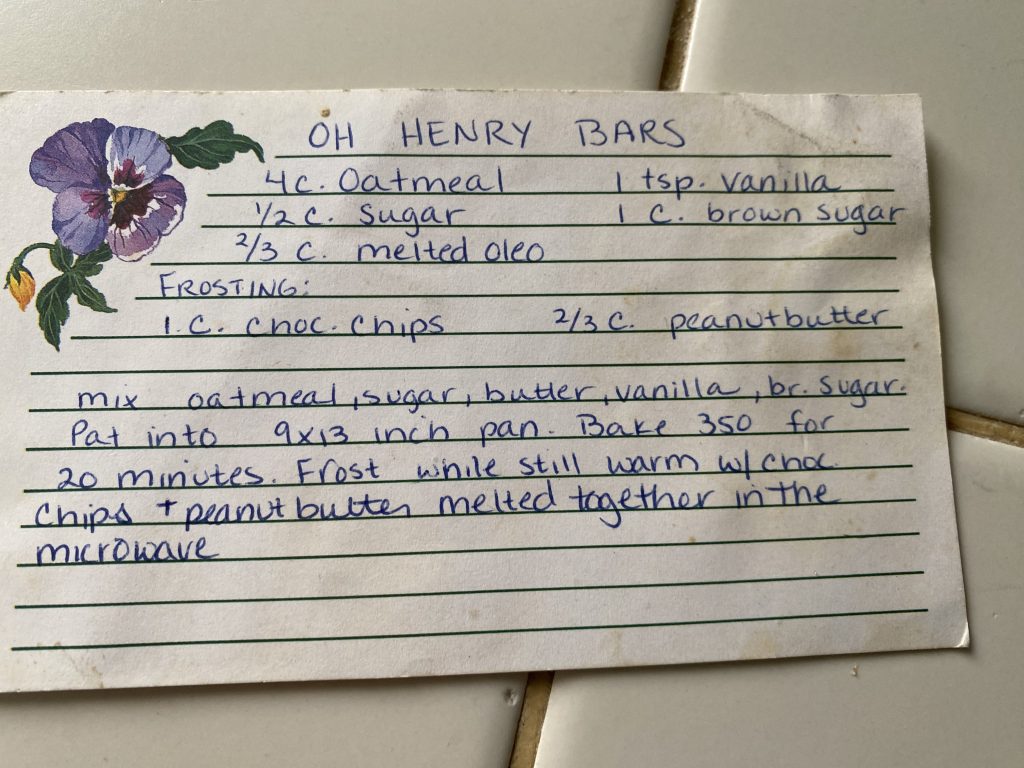 OH HENRY BARS
4 C. Oatmeal 1 tsp. vanilla
1/2 C. sugar 1 C. brown sugar
2/3 C. melted oleo
FROSTING:
1. C. choc. chips 2/3 C. peanutbutter
mix oatmeal, sugar, butter, vanilla, br. sugar.
Pat into 9x13 inch pan. Bake 350 for
20 minutes. Frost while still warm w/ choc.
chips + peanut butter melted together in the
microwave